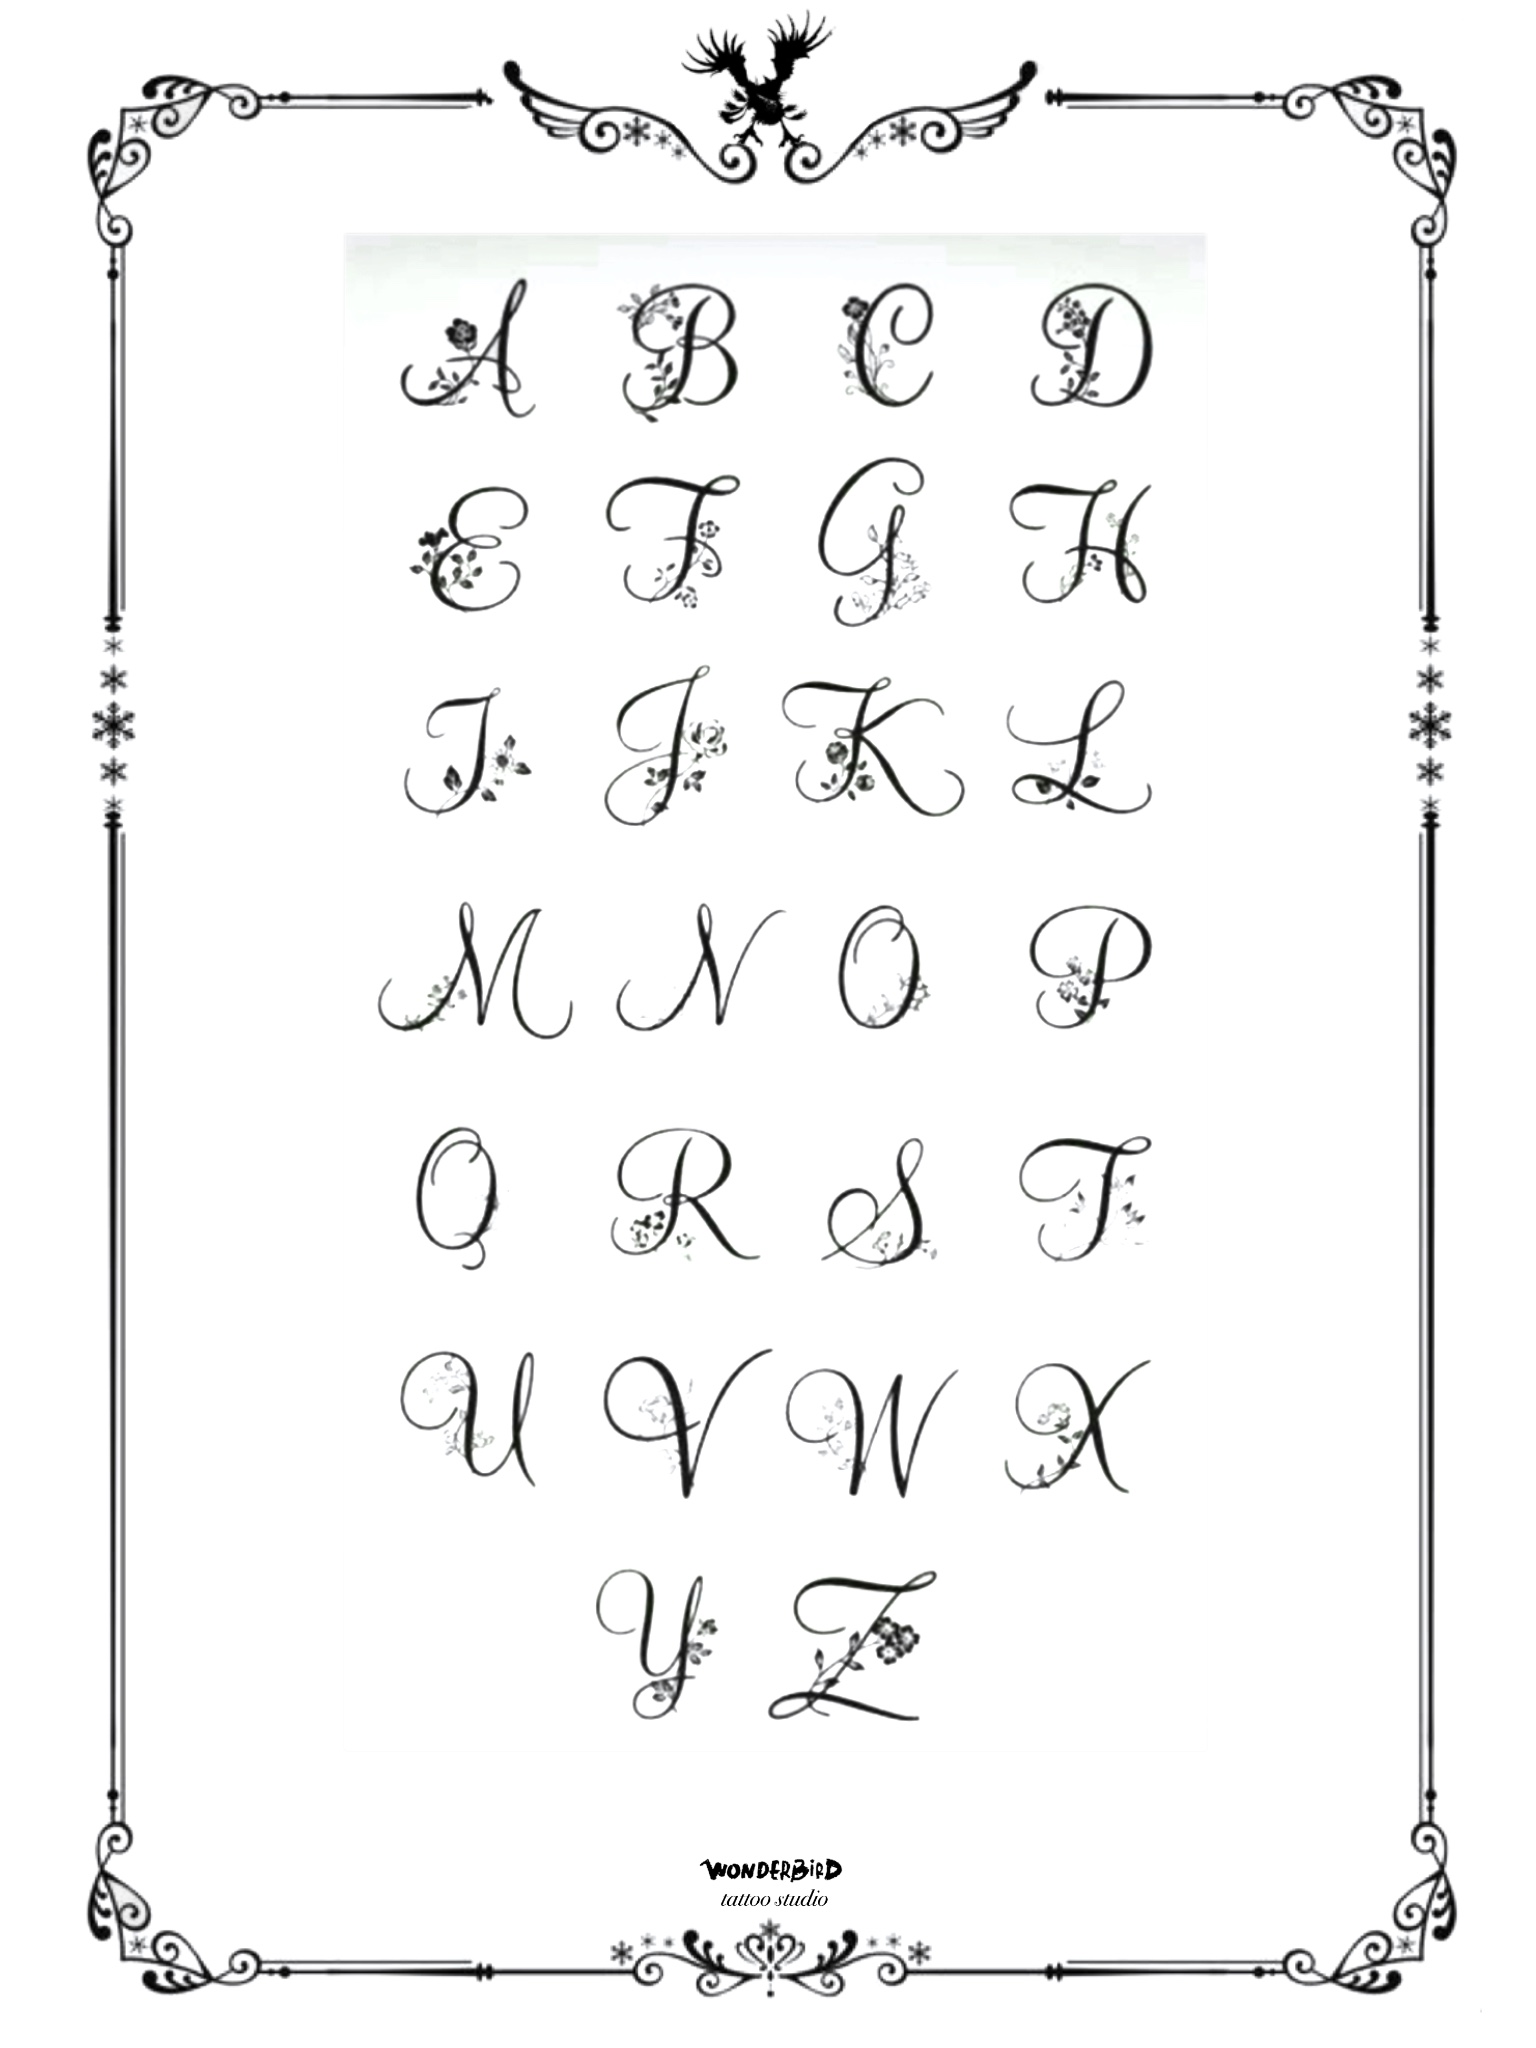 A B C D
E F G H
I J K L
M N O P
Q R S T
U V W X
Y Z
WONDERBIRD
tattoo studio